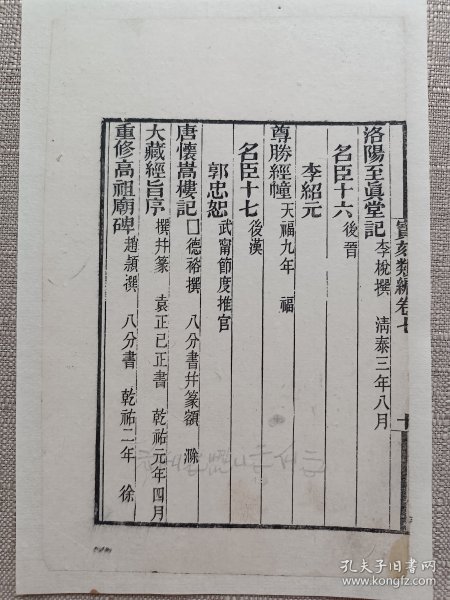 洛陽至眞堂記 李梲撰 淸泰三年八月
名臣十六 後晉
李紹元
尊勝經幢 天福九年 福
名臣十七 後漢
郭忠恕 武甯節度推官
唐懷嵩樓記 □德裕撰 八分書幷篆額 滁
大藏經旨序 撰幷篆 袁正己正書 乾祐元年四月
重修高祖廟碑 趙潁撰 八分書 乾祐二年 徐
寶刻類編卷七
孔夫子旧书网
www.kongfz.com